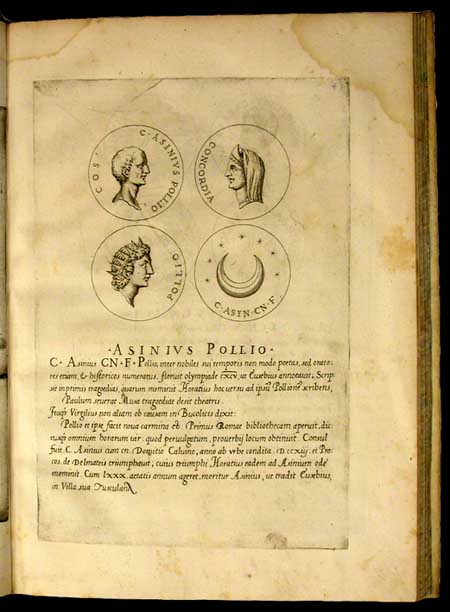 COS·
C·ASINIVS POLLIO
CONCORDIA
POLLIO
C·ASIN·CN·F·
·ASINIVS POLLIO·
C· Asinius CN·F· Pollio, inter nobiles sui temporis non modo poetas, sed orato-
res etiam, & historicos numeratus, floruit olympiade ut Eusebius annotauit. Scrip-
sit inprimis tragoedias, quarum meminit Horatius hoc versu ad ipsum Pollionem scribens,
Paulum seuerae Musa tragoediae desit theatris.
Itaque Virgilius non aliam ob causam in Bucolicis dixit:
Pollio et ipse facit noua carmina &c. Primus Romae bibliothecam aperuit, dic-
tusque omnium horarum vir: quod peruulgatum, prouerbij locum obtinuit. Consul
fuit C. Asinius cum cn Domitio Caluino, anno ab vrbe condita et Pro-
cos. de Delmateis triumphauit, cuius triumphi Horatius eadem ad Asinium ode
meminit. Cum lxxx. aetatis annum ageret, moritur Asinius, ut tradit Eusebius,
in Villa sua Tusculana